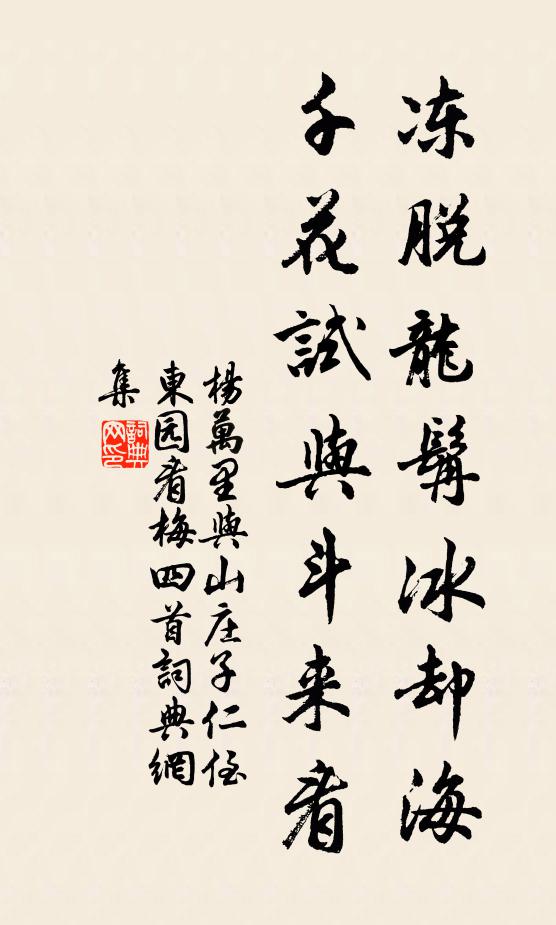 冻脱龍髯冰却海
千花試與斗来看
楊萬里與山庄子仁侄
東园看梅四首詞典網
集
詞典网印